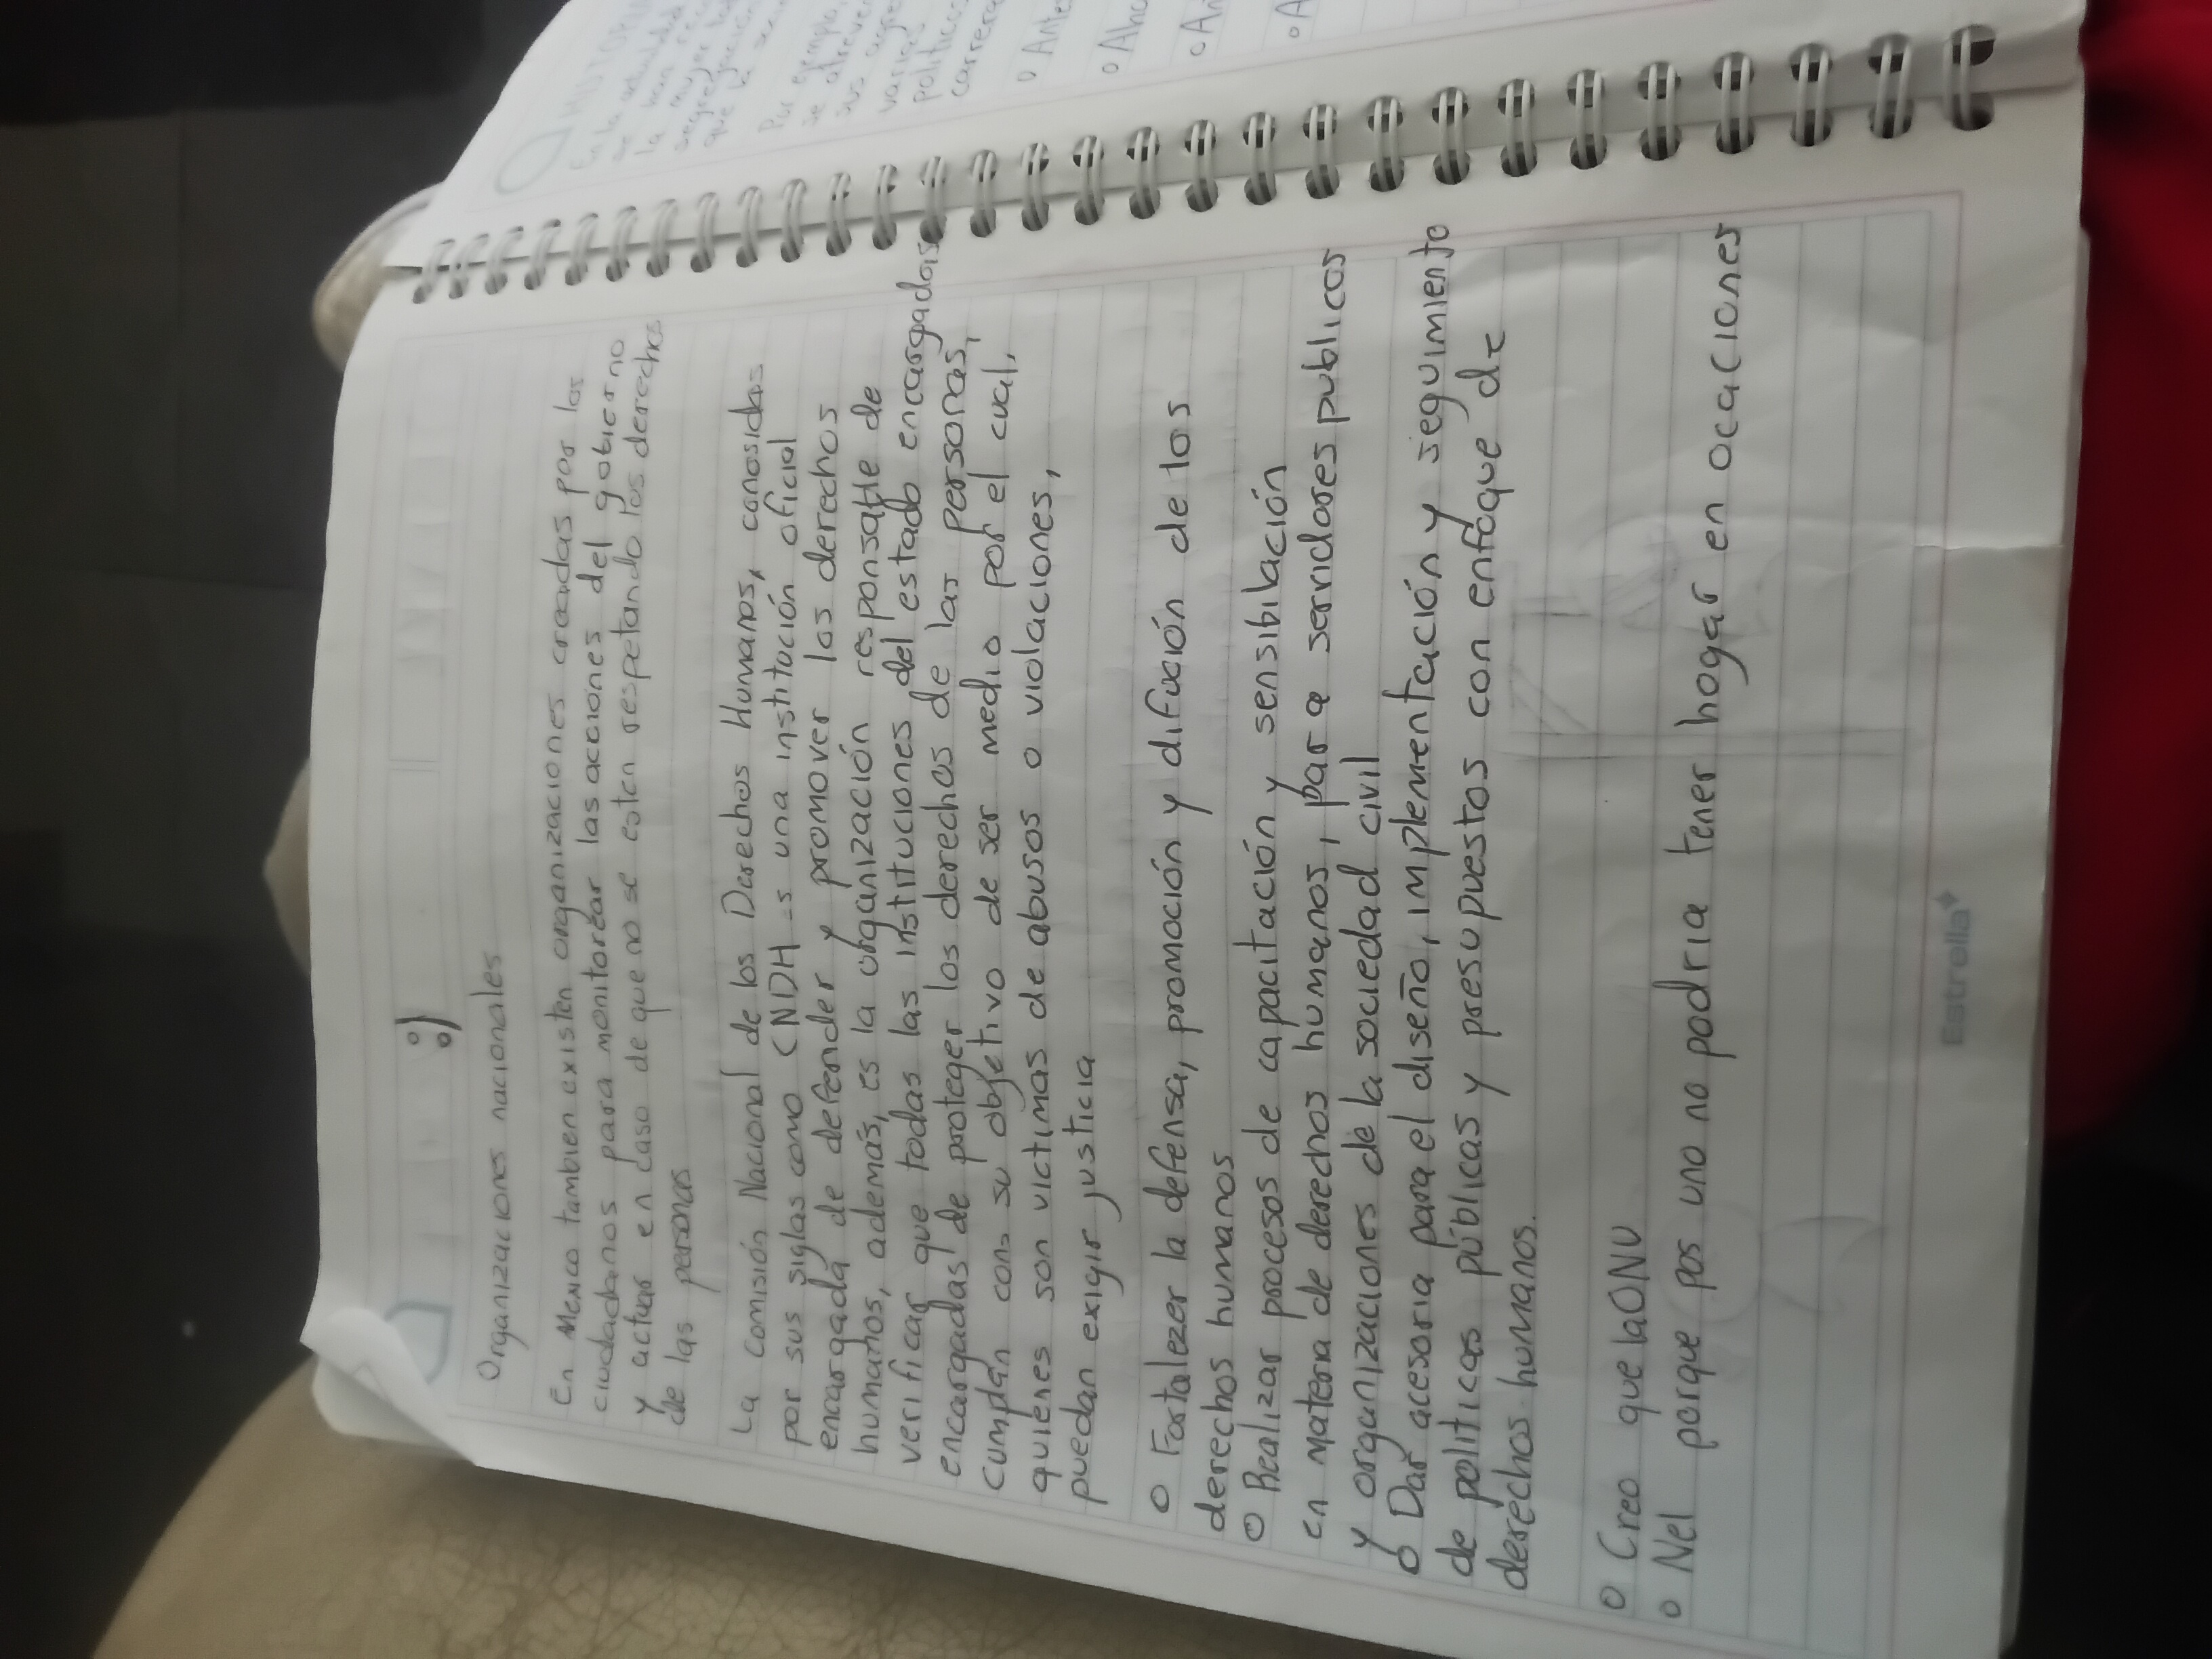 :)
Organizaciones nacionales
En Mexico tambien existen organizaciones creadas por los
ciudadanos para monitorear las acciones del gobierno
y actuar en caso de que no se esten respetando los derechos
de las personas
La Comisión Nacional de los Derechos Humanos, conosidas
por sus siglas como CNDH es una institución oficial
encargada de defender y promover los derechos
humanos, además, es la organización responsable de
verificar que todas las instituciones del estado encargadas
encargadas de proteger los derechos de las personas,
cumplan con su objetivo de ser medio por el cual,
quienes son victimas de abusos o violaciones,
puedan exigir justicia
o Fortalezer la defensa, promoción y difución de los
derechos humanos
o Realizar procesos de capacitación y sensibilación
en materia de derechos humanos, para servidores publicos
y organizaciones de la sociedad civil
o Dar acesoria para el diseño, implementación y seguimiento
de politicas públicas y presupuestos con enfoque de
derechos humanos.
o Creo que la ONU
o Nel porque pos uno no podria tener hogar en ocaciones
Estrella
MU
En la actualidad
la han
mujer
que la
Por ejemplo,
se atreven
sus
varias
politicos
carrera
o Ante
o Aho
o An
o A